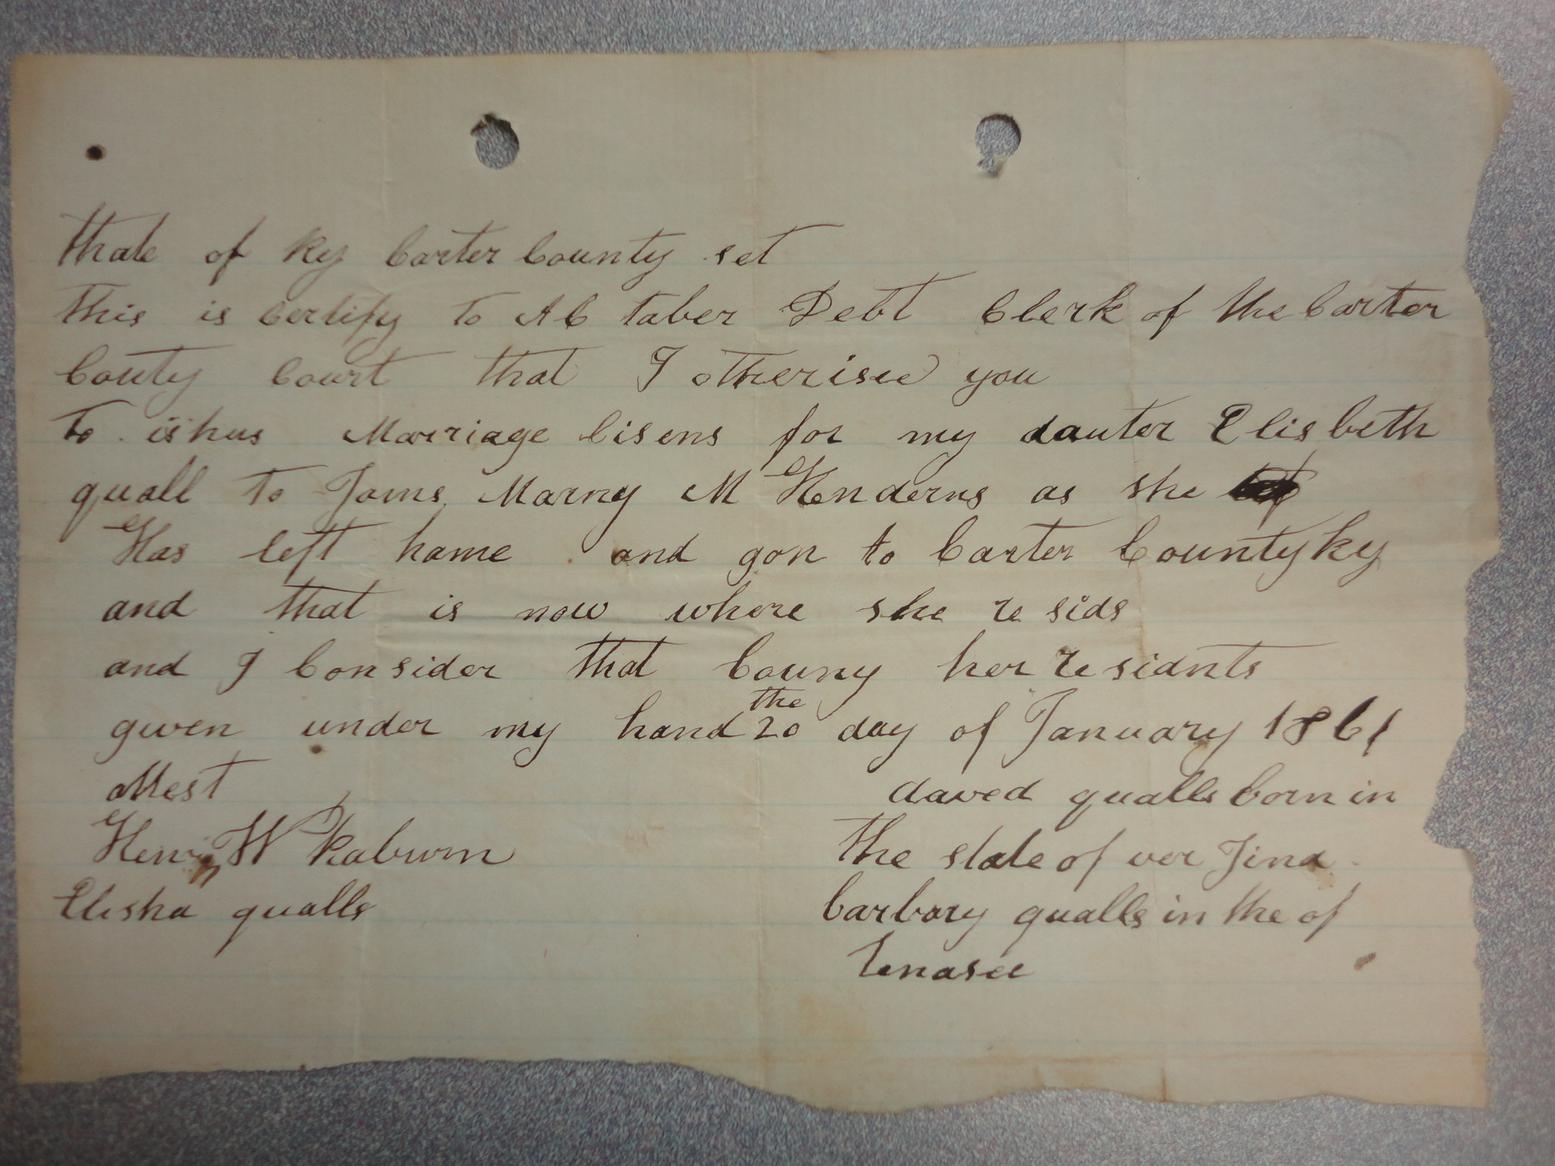 thate of Ky Carter County set
this is Certify to A C taber Debt Clerk of the Carter
Couty Court that I otherisee you
to ishus Marriage lisens for my dauter Elisbeth
quall to Jams Marny M Henderns as she
Has left hame and gon to Carter County ky
and that is now where she re sids
and I Consider that Couny her re sidnts
given under my hand the 20 day of January 1861
Attest daved qualls born in
Henry W Raburn the state of ver Jina
Elisha qualls barbary qualls in the of
Tenasee